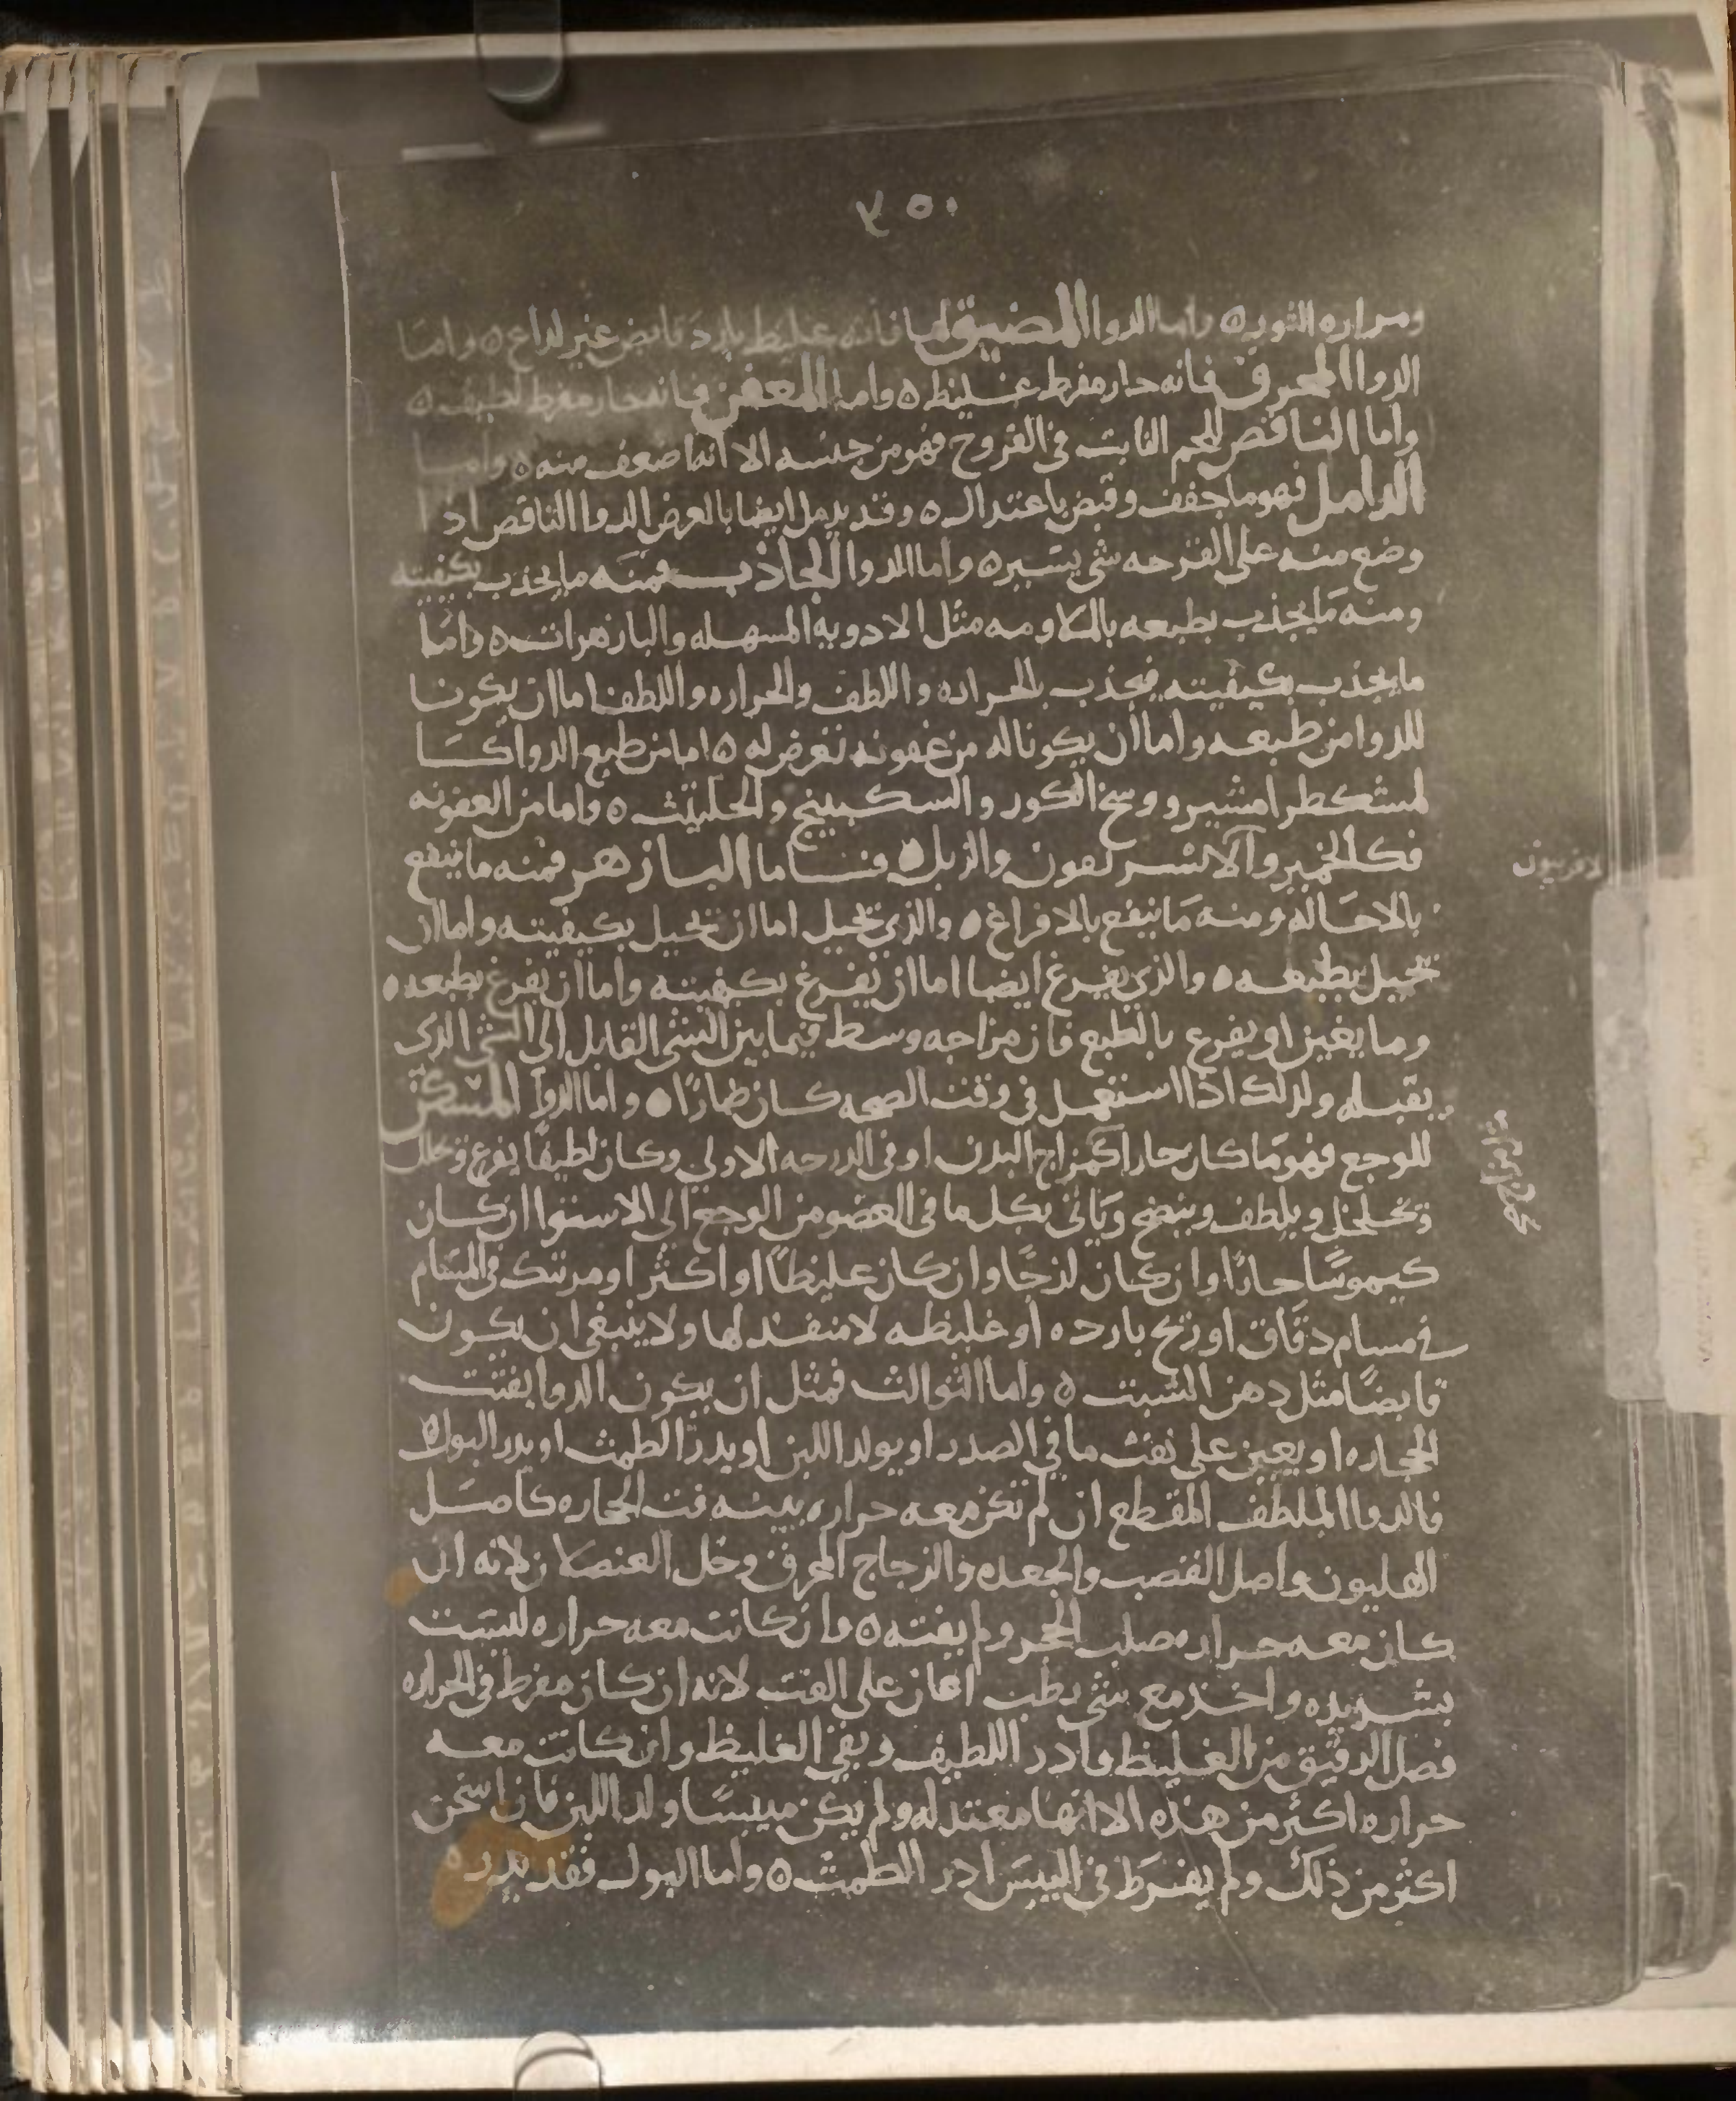 ٣٥٠
ومراره الثور ه واما الدوا المضيق لها فانه غليظ بارد قابض غير لداع ه واما
الدوا المحرق فانه حار مفرط غليظ ه واما المعفن فانه حار مفرط لطيف ه
واما الناقص للحم النابت في القروح فهو من جنسه الا انه اضعف منه ه واما
الدامل فهو ما جفف وقبض باعتدال ه وقد يدمل ايضا بالعرض الدوا الناقص اذا
وضع منه على القرحه شي يسير ه واما الدوا الجاذب فمنه ما يجذب بكيفيته
ومنه ما يجذب بطبعه مثل الادويه المسهله والبازهرات ه واما
ما يجذب بكيفيته فيجذب بالحراره واللطف والحراره واللطف اما ان يكونا
للدوا من طبعه واما ان يكونا له من عفونه تعرض له ه اما من طبع الدوا كا
لمشكطرامشير ووسخ الكور والسكبينج والحلتيت ه واما من العفونه
فكالخمير والزبل ه فاما البازهر فمنه ما ينفع
لافربيون
بالاحاله ومنه ما ينفع بالافراغ ه والذي يحيل اما ان يحيل بكيفيته واما ان
يحيل بطبعه ه والذي يفرغ ايضا اما ان يفرغ بكيفيته واما ان يفرغ بطبعه ه
وما يغير او يفرغ بالطبع فان مزاجه وسط فيما بين الشي القابل الى الشي الذي
يقبله ولذلك اذا استعمل في وقت الصحه كان ضارا ه واما الدوا المسكن
للوجع فهو ما كان حارا كمزاج البدن او في الدرجه الاولى وكان لطيفا يفرغ ويحلل
ويخلخل ويلطف وينضج وياتي بكل ما في العضو من الوجع الى الاستوا ان كان
كيموسا حادا وان كان لزجا وان كان غليظا او اكثر او مرتبك في المسام
في مسام دقاق او ريح بارده او غليظه لا منفذ لها ولا ينبغي ان يكون
قابضا مثل دهن الشبت ه واما الثوالث فمثل ان يكون الدوا يفتت
الحجاره او يعين على نفث ما في الصدر او يولد اللبن او يدر الطمث او يدر البول ه
فالدوا الملطف المقطع ان لم تكن معه حراره بينه فت الحجاره كاصل
الهليون واصل القصب والجعده والزجاج المحرق وخل العنصلان لانه اي
كان معه حراره صلب الحجر ولم يفته ه وان كانت معه حراره ليست
بشديده واخذ مع شي رطب اعان على الفت لانه ان كان مفرط في الحراره
فصل الدقيق من الغليظ فادر اللطيف وبقي الغليظ وان كانت معه
حراره اكثر من هذه الا انها معتدله ولم يكن ميبسا ولد اللبن فان اسخن
اكثر من ذلك ولم يفرط في اليبس ادر الطمث ه واما البول فقد يدره